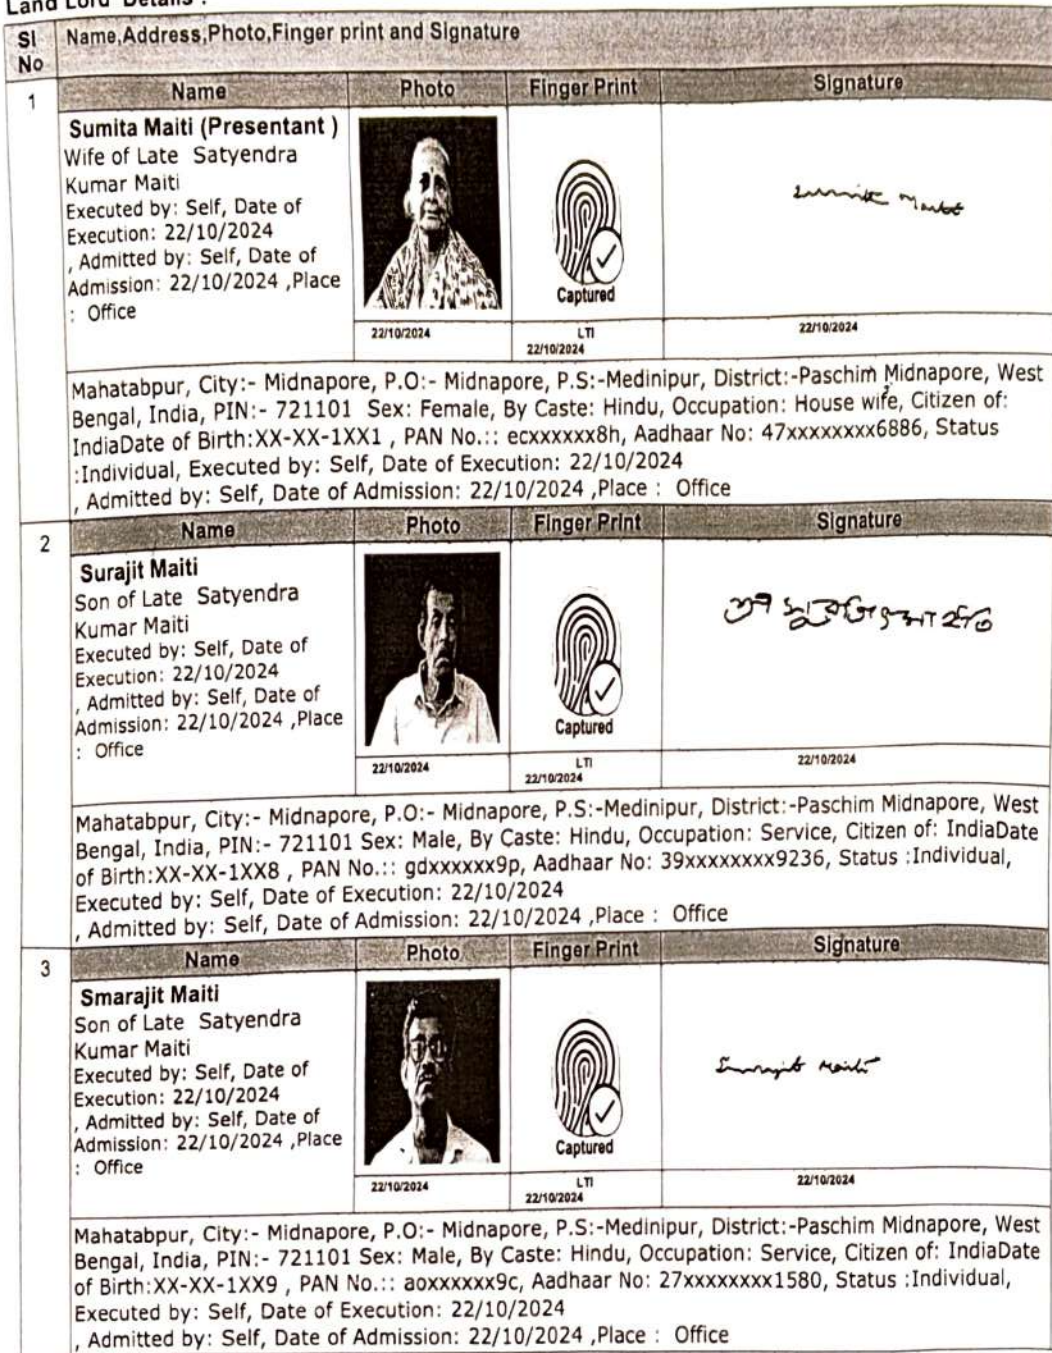 Land Lord Details :
Sl No
Name,Address,Photo,Finger print and Signature
1
Name
Photo
Finger Print
Signature
Sumita Maiti (Presentant )
Wife of Late Satyendra
Kumar Maiti
Executed by: Self, Date of
Execution: 22/10/2024
, Admitted by: Self, Date of
Admission: 22/10/2024 ,Place
: Office
Captured
Sumita Maiti
22/10/2024
LTI
22/10/2024
22/10/2024
Mahatabpur, City:- Midnapore, P.O:- Midnapore, P.S:-Medinipur, District:-Paschim Midnapore, West
Bengal, India, PIN:- 721101 Sex: Female, By Caste: Hindu, Occupation: House wife, Citizen of:
IndiaDate of Birth:XX-XX-1XX1 , PAN No.:: ecxxxxxx8h, Aadhaar No: 47xxxxxxxx6886, Status
:Individual, Executed by: Self, Date of Execution: 22/10/2024
, Admitted by: Self, Date of Admission: 22/10/2024 ,Place : Office
2
Name
Photo
Finger Print
Signature
Surajit Maiti
Son of Late Satyendra
Kumar Maiti
Executed by: Self, Date of
Execution: 22/10/2024
, Admitted by: Self, Date of
Admission: 22/10/2024 ,Place
: Office
Captured
22/10/2024
LTI
22/10/2024
22/10/2024
Mahatabpur, City:- Midnapore, P.O:- Midnapore, P.S:-Medinipur, District:-Paschim Midnapore, West
Bengal, India, PIN:- 721101 Sex: Male, By Caste: Hindu, Occupation: Service, Citizen of: IndiaDate
of Birth:XX-XX-1XX8 , PAN No.:: gdxxxxxx9p, Aadhaar No: 39xxxxxxxx9236, Status :Individual,
Executed by: Self, Date of Execution: 22/10/2024
, Admitted by: Self, Date of Admission: 22/10/2024 ,Place : Office
3
Name
Photo
Finger Print
Signature
Smarajit Maiti
Son of Late Satyendra
Kumar Maiti
Executed by: Self, Date of
Execution: 22/10/2024
, Admitted by: Self, Date of
Admission: 22/10/2024 ,Place
: Office
Captured
Smarajit Maiti
22/10/2024
LTI
22/10/2024
22/10/2024
Mahatabpur, City:- Midnapore, P.O:- Midnapore, P.S:-Medinipur, District:-Paschim Midnapore, West
Bengal, India, PIN:- 721101 Sex: Male, By Caste: Hindu, Occupation: Service, Citizen of: IndiaDate
of Birth:XX-XX-1XX9 , PAN No.:: aoxxxxxx9c, Aadhaar No: 27xxxxxxxx1580, Status :Individual,
Executed by: Self, Date of Execution: 22/10/2024
, Admitted by: Self, Date of Admission: 22/10/2024 ,Place : Office